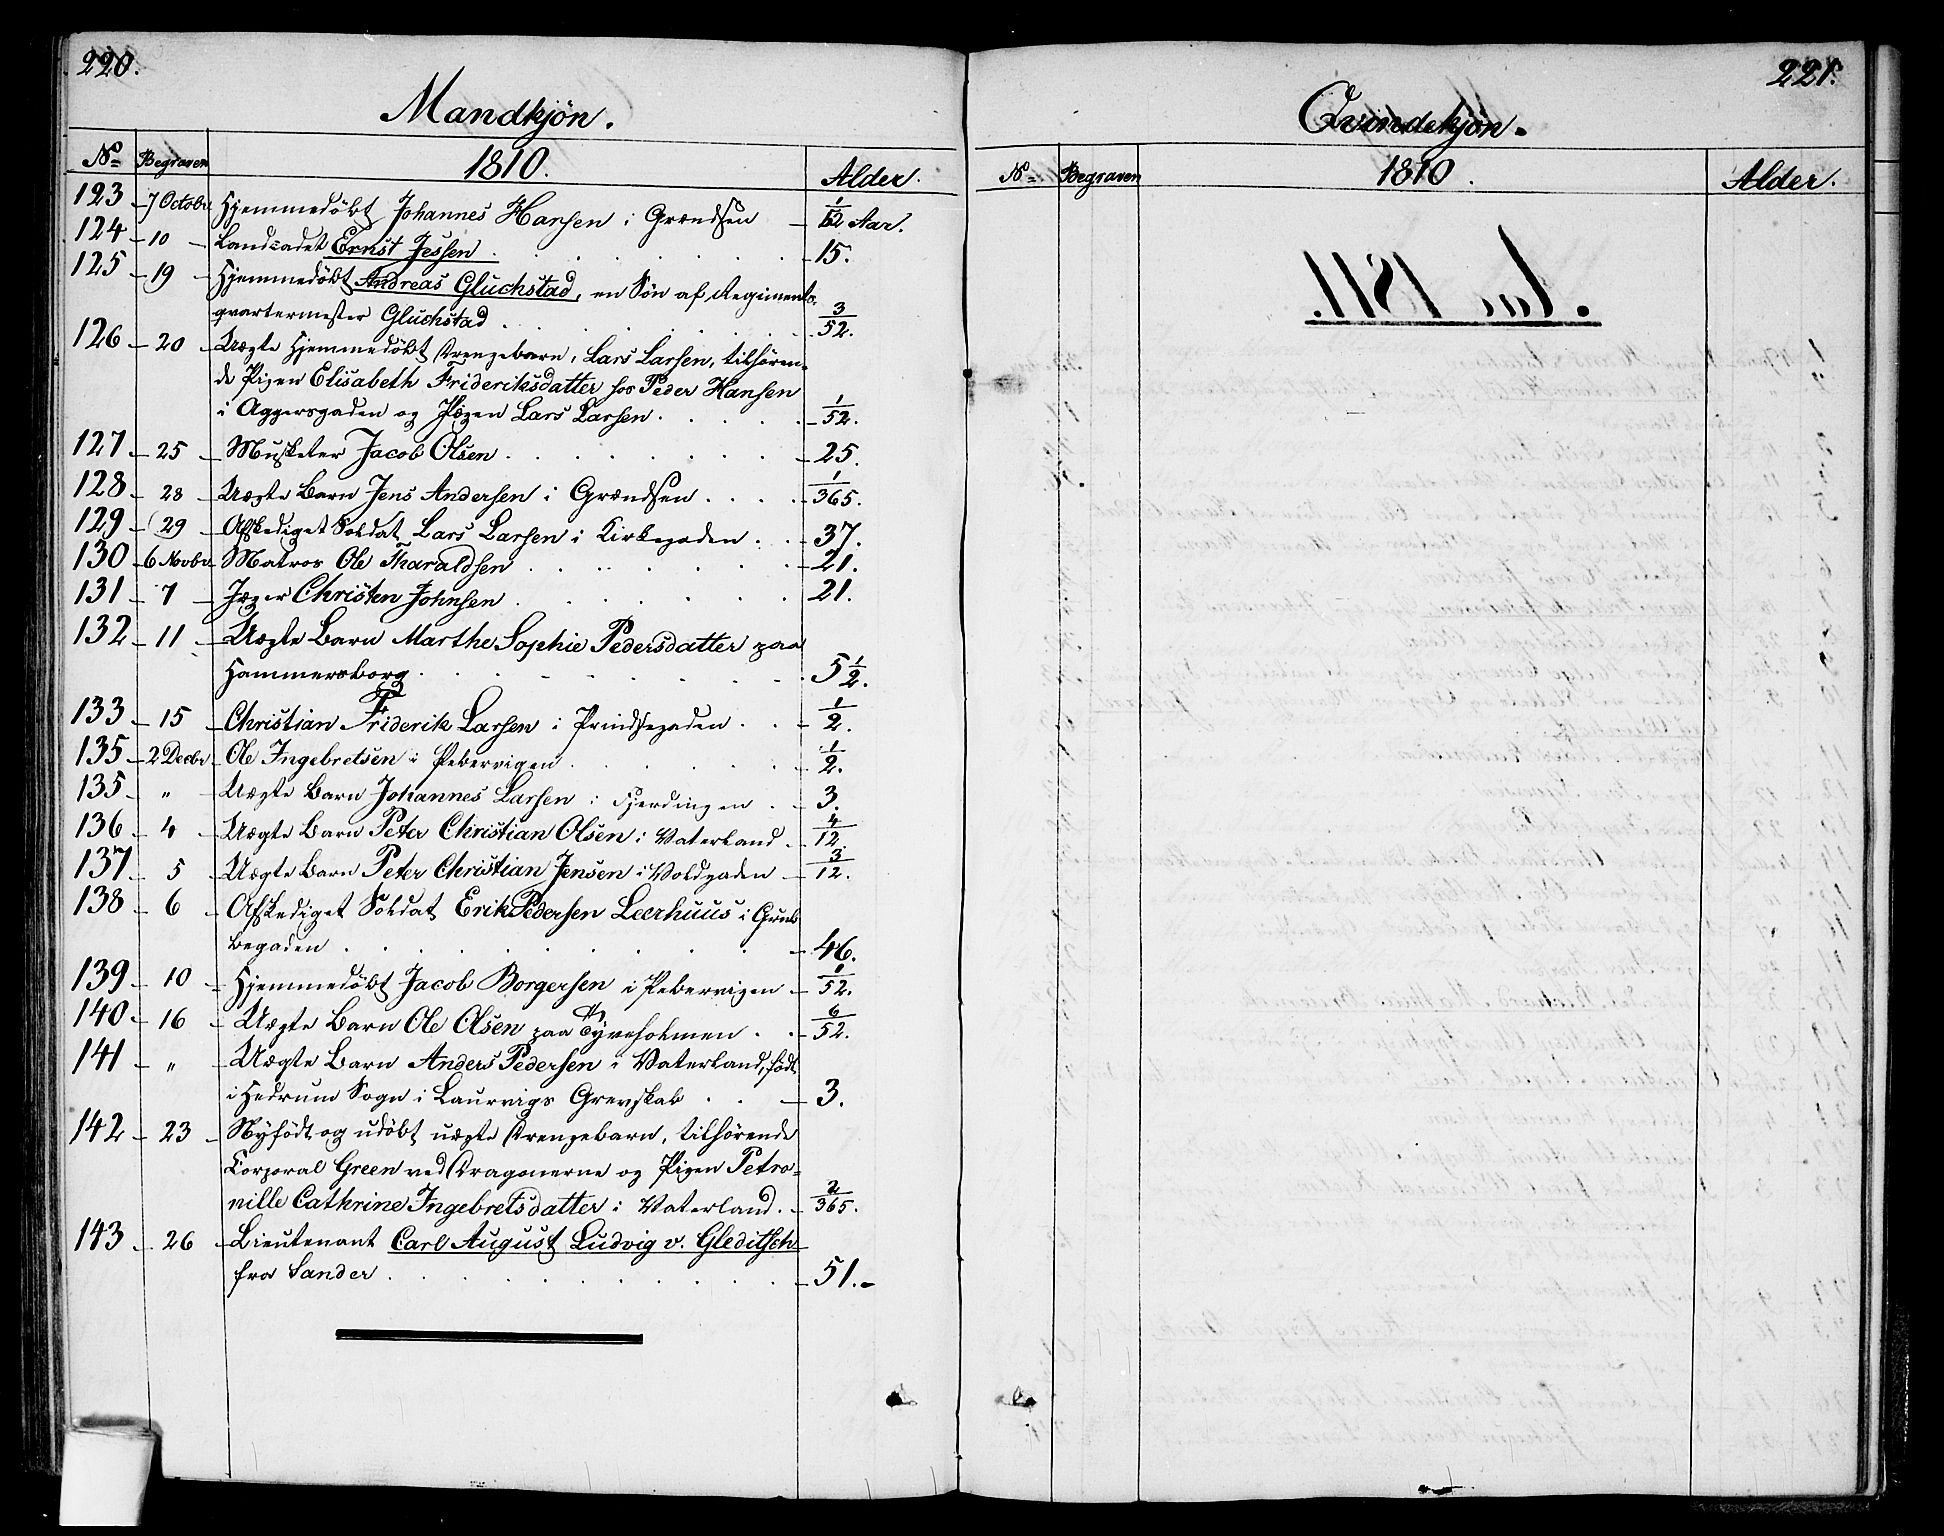 220.
Mandkjön.
No Begraven 1810. Alder.
123 7 Octobr Hjemmedöbt Johannes Hansen i Grændsen 1/12 Aar.
124 10 Landcadet Ernst Jessen 15.
125 19 Hjemmedöbt Andreas Gluchstad, en Sön af Regiments-
qvartermester Gluchstad 3/52.
126 20 Uægte Hjemmedöbt Drengebarn, Lars Larsen, tilhören-
de Pigen Elisabeth Frideriksdatter hos Peder Hansen
i Aggersgaden og Lars Larsen 1/52.
127 25 Musketer Jacob Olsen 25.
128 28 Uægte Barn Jens Andersen i Grændsen 1/365.
129 29 Afskediget Soldat Lars Larsen i Kirkegaden 37.
130 6 Novbr Matros Ole Tharaldsen 21.
131 7 Jæger Christen Johnsen 21.
132 11 Uægte Barn Marthe Sophie Pedersdatter paa
Hammersborg 5 1/2.
133 15 Christian Friderik Larsen i Prindsegaden 1/2.
135 2 Decbr Ole Ingebretsen i Pebervigen 1/2.
135 " Uægte Barn Johannes Larsen i Fjerdingen 3.
136 4 Uægte Barn Peter Christian Olsen i Vaterland 4/12
137 5 Uægte Barn Peter Christian Jensen i Voldgaden 3/12.
138 6 Afskediget Soldat Erik Pedersen Leerhuus i Grub-
begaden 46.
139 10 Hjemmedöbt Jacob Borgersen i Pebervigen 1/52.
140 16 Uægte Barn Ole Olsen paa Tyveholmen 6/52.
141 " Uægte Barn Anders Pedersen i Vaterland, födt
i Hedrum Sogn i Laurvigs Grevskab 3.
142 23 Nyfödt og udöbt uægte Drengebarn, tilhörende
Corporal Green ved Dragonerne og Pigen Petro-
nille Cathrine Ingebretsdatter i Vaterland. 2/365.
143 26 Lieutenant Carl August Ludvig v. Gleditsch
fra Sander 51.
221.
Qvindekjön.
No Begraven 1810. Alder.